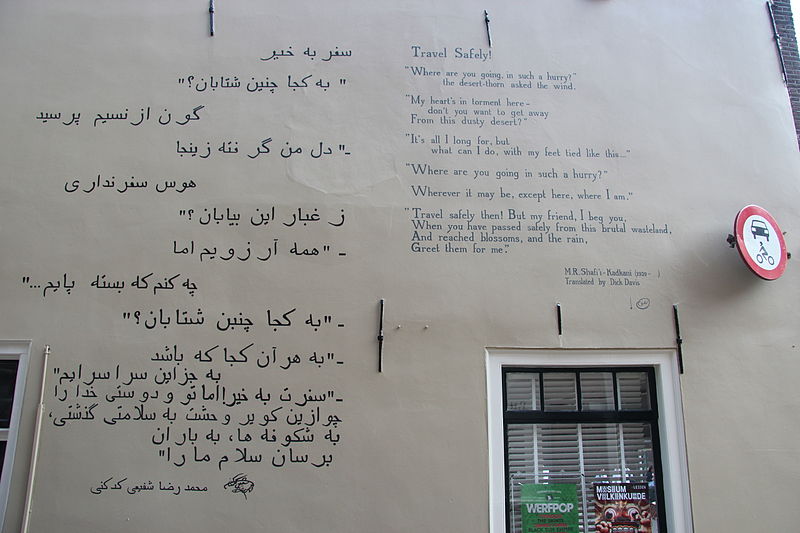 سفر به خیر
" به کجا چنین شتابان؟"
گون از نسیم پرسید
ـ" دل من گرفته زینجا
هوس سفر نداری
ز غبار این بیابان؟"
ـ "همه آرزویم اما
چه کنم که بسته پایم..."
ـ "به کجا چنین شتابان؟"
ـ "به هر آن کجا که باشد
به جز این سرا سرایم"
ـ "سفرت به خیر! اما تو و دوستی خدا را
چو ازین کویر وحشت به سلامتی گذشتی،
به شکوفه ها، به باران
برسان سلام ما را"
محمد رضا شفیعی کدکنی
Travel Safely!
"Where are you going, in such a hurry?"
the desert-thorn asked the wind.
"My heart's in torment here -
don't you want to get away
From this dusty desert?"
"It's all I long for, but
what can I do, with my feet tied like this..."
"Where are you going in such a hurry?"
Wherever it may be, except here, where I am."
"Travel safely then! But my friend, I beg you,
When you have passed safely from this brutal wasteland,
And reached blossoms, and the rain,
Greet them for me."
M.R. Shafi'i - Kadkani (1939 - )
Translated by Dick Davis
WERFPOP
MUSEUM
VOLKENKUNDE
LEIDEN